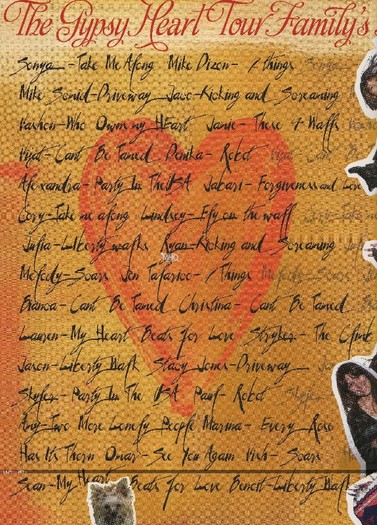 The Gypsy Heart Tour Family's
Sonya - Take Me Along Mike Dizon - 7 things
Mike Schmid - Driveway Jaco - Kicking and Screaming
Vashon - Who Owns my Heart Jamie - These 4 Walls
Vijat - Cant Be Tamed Denika - Robot
Alexandra - Party In The USA Jabari - Forgiveness and Love
Cory - Take me along Lindsey - Fly on the wall
Julia - Liberty walks Ryan - Kicking and Screaming
Melody - Scars Jen Talarico - 7 Things
Bianca - Cant Be Tamed Christina - Cant Be Tamed
Lauren - My Heart Beats for Love Stryker - The Climb
Jason - Liberty Walk Stacy Jones - Driveway
Skyler - Party In The USA Paul - Robot
Any - Two More Lonely People Marina - Every Rose
Has Its Thorn Omar - See You Again Vish - Scars
Sean - My Heart Beats for Love Benoit - Liberty Walk